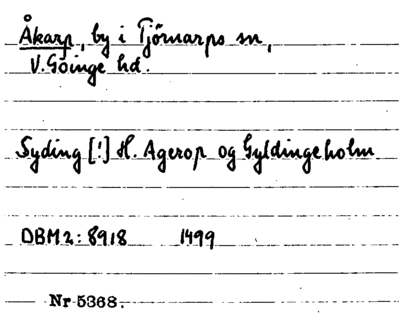 Åkarp, by i Tjörnarps sn,
V. Göinge hd.
Syding [!] H. Agerop og Gyldingeholm
DBM 2: 8918 1499
Nr 5368.